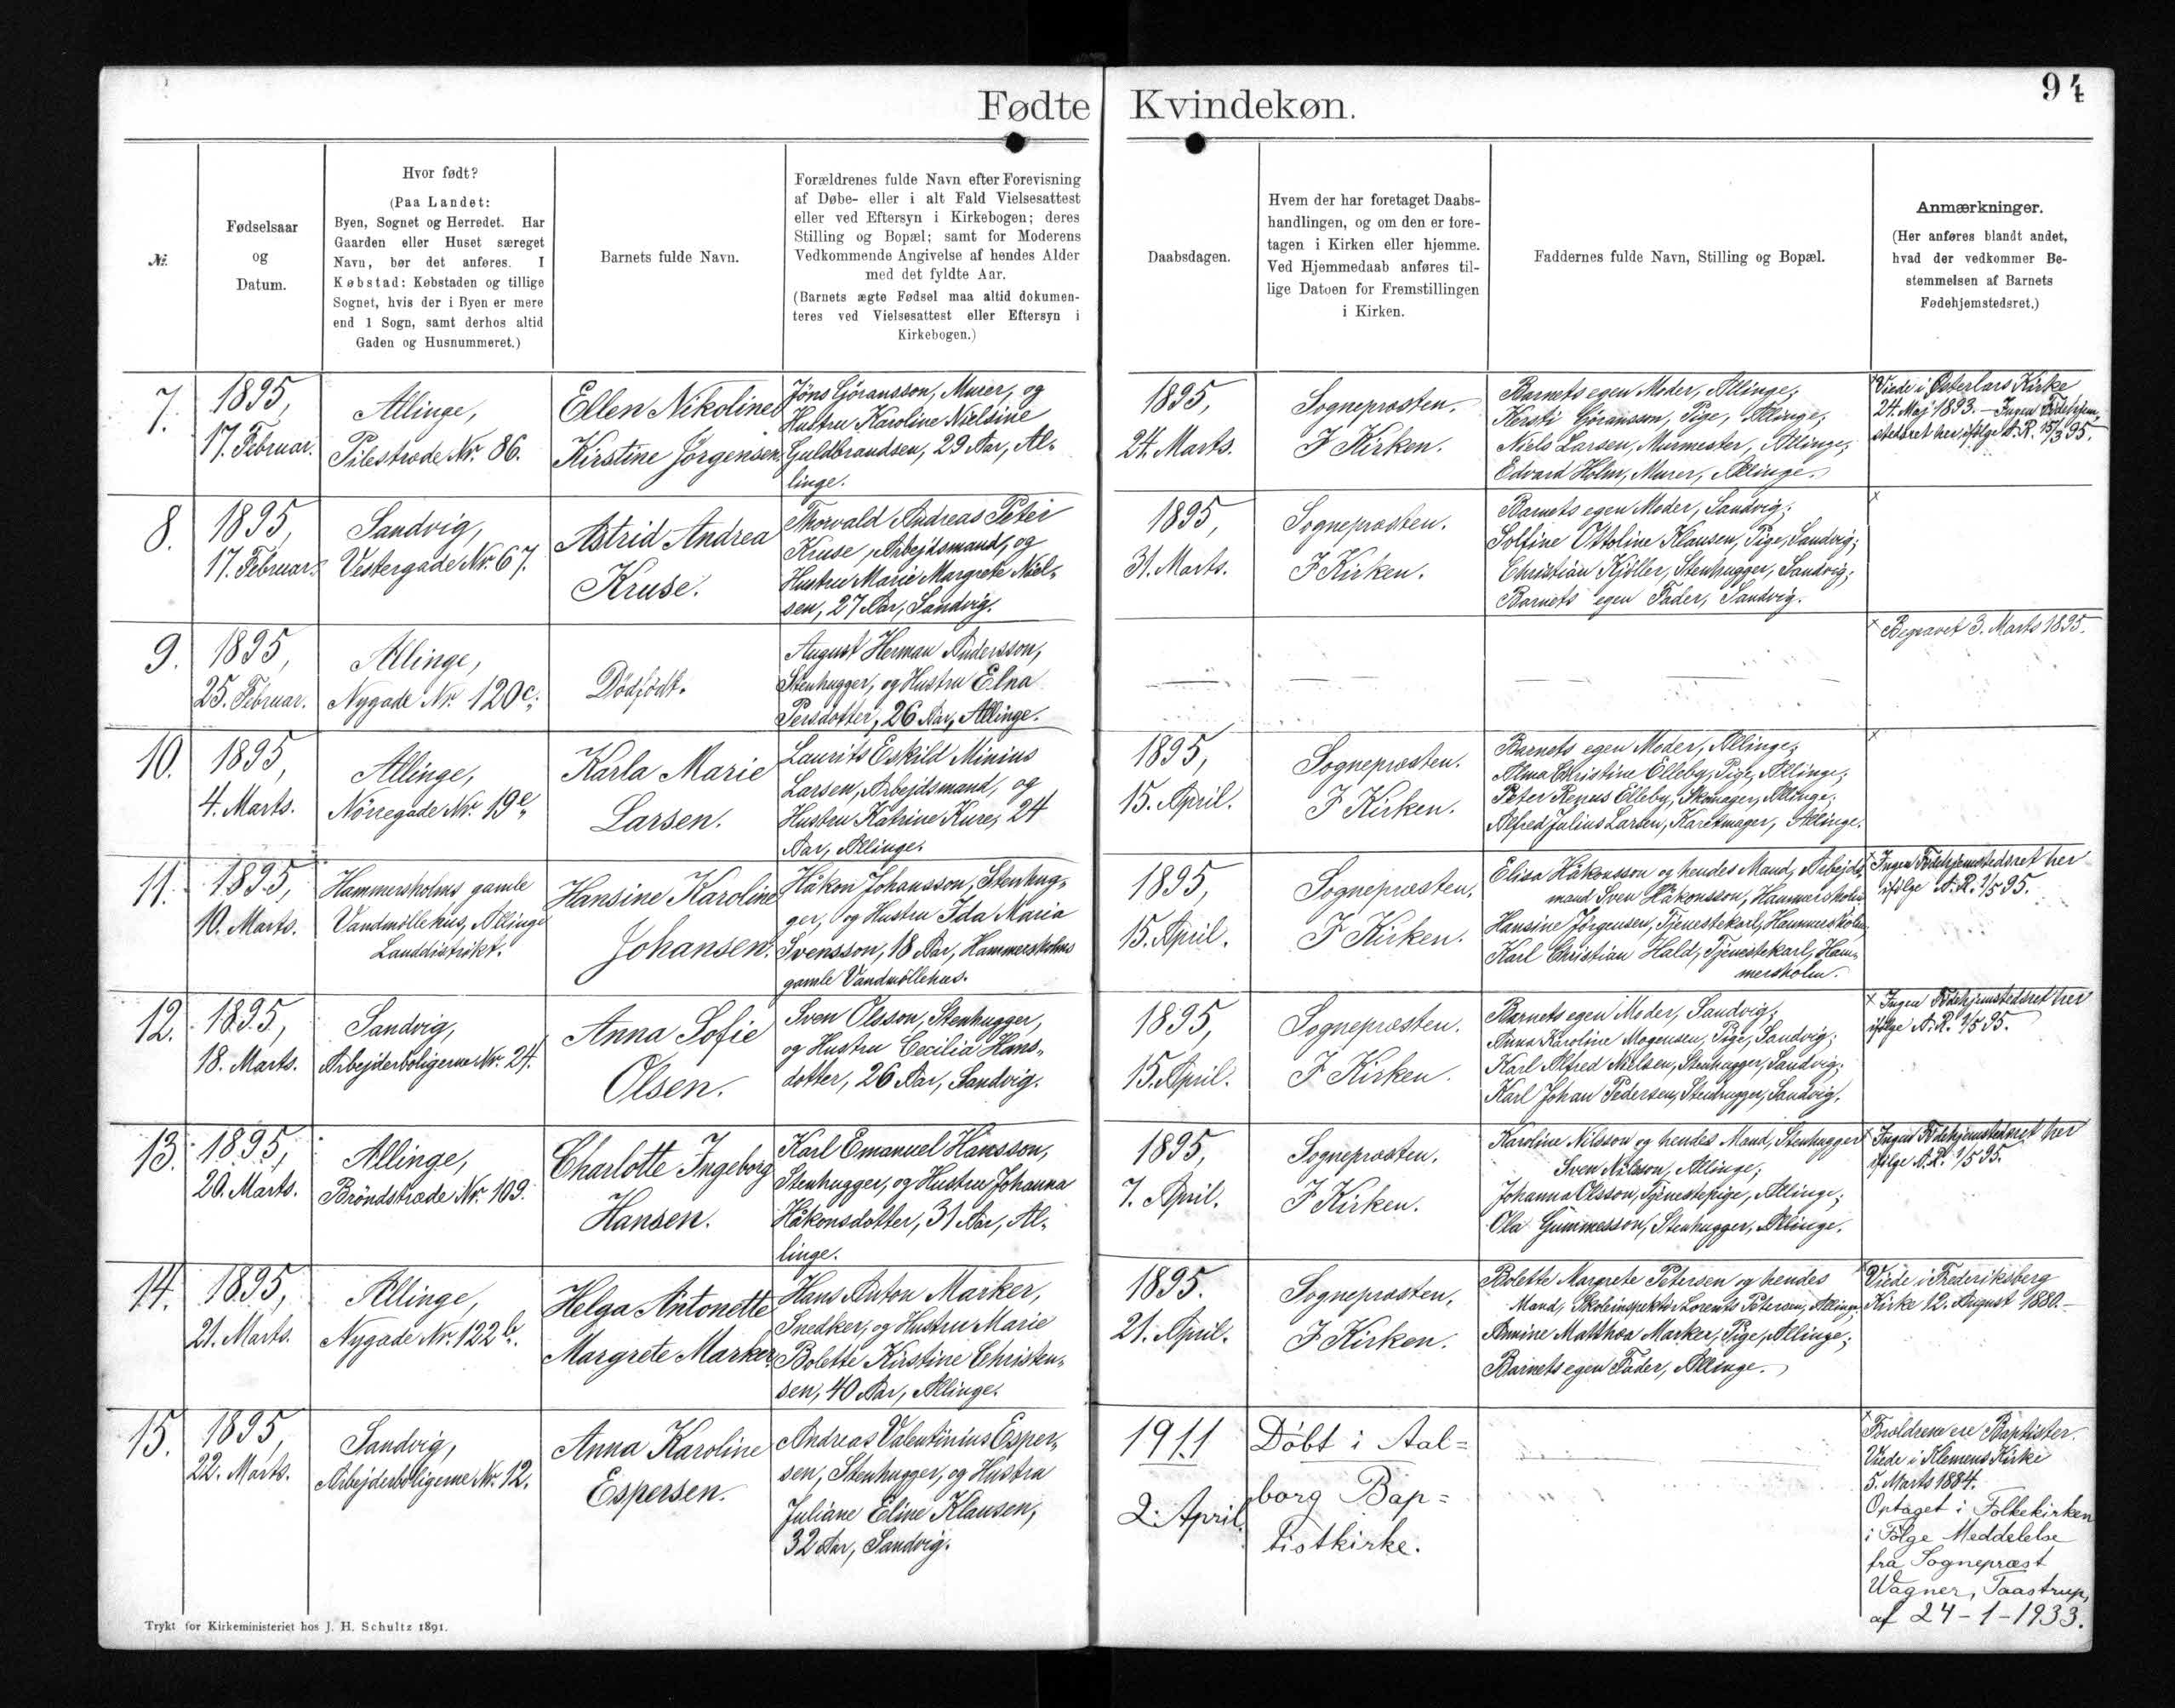 94
Fødte Kvindekøn.
№.
Fødselsaar
og
Datum.
Hvor født?
(Paa Landet:
Byen, Sognet og Herredet. Har
Gaarden eller Huset særeget
Navn, bør det anføres. I
Købstad: Købstaden og tillige
Sognet, hvis der i Byen er mere
end 1 Sogn, samt derhos altid
Gaden og Husnummeret.)
Barnets fulde Navn.
Forældrenes fulde Navn efter Forevisning
af Døbe- eller i alt Fald Vielsesattest
eller ved Eftersyn i Kirkebogen; deres
Stilling og Bopæl; samt for Moderens
Vedkommende Angivelse af hendes Alder
med det fyldte Aar.
(Barnets ægte Fødsel maa altid dokumen-
teres ved Vielsesattest eller Eftersyn i
Kirkebogen.)
Daabsdagen.
Hvem der har foretaget Daabs-
handlingen, og om den er fore-
tagen i Kirken eller hjemme.
Ved Hjemmedaab anføres til-
lige Datoen for Fremstillingen
i Kirken.
Faddernes fulde Navn, Stilling og Bopæl.
Anmærkninger.
(Her anføres blandt andet,
hvad der vedkommer Be-
stemmelsen af Barnets
Fødehjemstedsret.)
7.
1895,
17. Februar.
Allinge,
Pilestræde Nr. 86.
Ellen Nikoline
Kirstine Jørgensen.
Jöns Göransson, Murer, og
Hustru Karoline Nielsine
Guldbrandsen, 29 Aar, Al-
linge.
1895,
24. Marts.
Sognepræsten.
I Kirken.
Barnets egen Moder, Allinge;
Kersti Göransson, Pige, Allinge;
Niels Larsen, Murmester, Allinge;
Edvard Holm, Murer, Allinge.
× Viede i Østerlars Kirke
24. Maj 1893. — Ingen Fødehjem-
stedsret her ifølge A. R. 15/3 95.
8.
1895,
17. Februar.
Sandvig,
Vestergade Nr. 67.
Astrid Andrea
Kruse.
Thorvald Andreas Peter
Kruse, Arbejdsmand, og
Hustru Marie Margrete Niel-
sen, 27 Aar, Sandvig.
1895,
31. Marts.
Sognepræsten.
I Kirken.
Barnets egen Moder, Sandvig;
Solfine Ottoline Klausen, Pige, Sandvig;
Christian Kjöller, Stenhugger, Sandvig;
Barnets egen Fader, Sandvig.
×
9.
1895,
25. Februar.
Allinge,
Nygade Nr. 120 c.
Dødfødt.
August Herman Andersson,
Stenhugger, og Hustru Elna
Persdotter, 26 Aar, Allinge.
× Begravet 3. Marts 1895.
10.
1895,
4. Marts.
Allinge,
Nörregade Nr. 19 e.
Karla Marie
Larsen.
Laurits Eskild Minius
Larsen, Arbejdsmand, og
Hustru Katrine Kure, 24
Aar, Allinge.
1895,
15. April.
Sognepræsten.
I Kirken.
Barnets egen Moder, Allinge;
Alma Christine Elleby, Pige, Allinge;
Peter Renus Elleby, Skomager, Allinge;
Alfred Julius Larsen, Karetmager, Allinge.
×
11.
1895,
10. Marts.
Hammersholms gamle
Vandmöllehus, Allinge
Landdistrikt.
Hansine Karoline
Johansen.
Håkon Johansson, Stenhug-
ger, og Hustru Ida Maria
Svensson, 18 Aar, Hammersholms
gamle Vandmöllehus.
1895,
15. April.
Sognepræsten.
I Kirken.
Elisa Håkonsson og hendes Mand, Arbejds-
mand Sven Håkonsson, Hammersholm;
Hansine Jörgensen, Tjenestekarl, Hammersholm;
Karl Christian Hald, Tjenestekarl, Ham-
mersholm.
× Ingen Fødehjemstedsret her
ifølge A. R. 1/5 95.
12.
1895,
18. Marts.
Sandvig,
Arbejderboligerne Nr. 24.
Anna Sofie
Olsen.
Sven Olsson, Stenhugger,
og Hustru Cecilia Hans-
dotter, 26 Aar, Sandvig.
1895,
15. April.
Sognepræsten.
I Kirken.
Barnets egen Moder, Sandvig;
Anna Karoline Mogensen, Pige, Sandvig;
Karl Alfred Nielsen, Stenhugger, Sandvig;
Karl Johan Pedersen, Stenhugger, Sandvig.
× Ingen Fødehjemstedsret her
ifølge A. R. 1/5 95.
13.
1895,
20. Marts.
Allinge,
Bröndstræde Nr. 109.
Charlotte Ingeborg
Hansen.
Karl Emanuel Hansson,
Stenhugger, og Hustru Johanna
Håkonsdotter, 31 Aar, Al-
linge.
1895,
7. April.
Sognepræsten.
I Kirken.
Karoline Nilsson og hendes Mand, Stenhugger
Sven Nilsson, Allinge;
Johanna Olsson, Tjenestepige, Allinge;
Ola Gummesson, Stenhugger, Allinge.
× Ingen Fødehjemstedsret her
ifølge A. R. 1/5 95.
14.
1895,
21. Marts.
Allinge,
Nygade Nr. 122 b.
Helga Antonette
Margrete Marker.
Hans Anton Marker,
Snedker, og Hustru Marie
Bolette Kirstine Christen-
sen, 40 Aar, Allinge.
1895.
21. April.
Sognepræsten.
I Kirken.
Bolette Margrete Petersen og hendes
Mand, Skoleinspektör Lorents Petersen, Allinge;
Annine Matthea Marker, Pige, Allinge;
Barnets egen Fader, Allinge.
× Viede i Frederiksberg
Kirke 12. August 1880. —
15.
1895,
22. Marts.
Sandvig,
Arbejderboligerne Nr. 12.
Anna Karoline
Espersen.
Andreas Valentinius Esper-
sen, Stenhugger, og Hustru
Juliane Eline Klausen,
32 Aar, Sandvig.
1911
2. April.
Døbt i Aal=
borg Bap=
tistkirke.
× Forældrene ere Baptister.
Viede i Klemens Kirke
5. Marts 1884.
Optaget i Folkekirken
i Følge Meddelelse
fra Sognepræst
Wagner, Taastrup,
af 24-1-1933.
Trykt for Kirkeministeriet hos J. H. Schultz 1891.